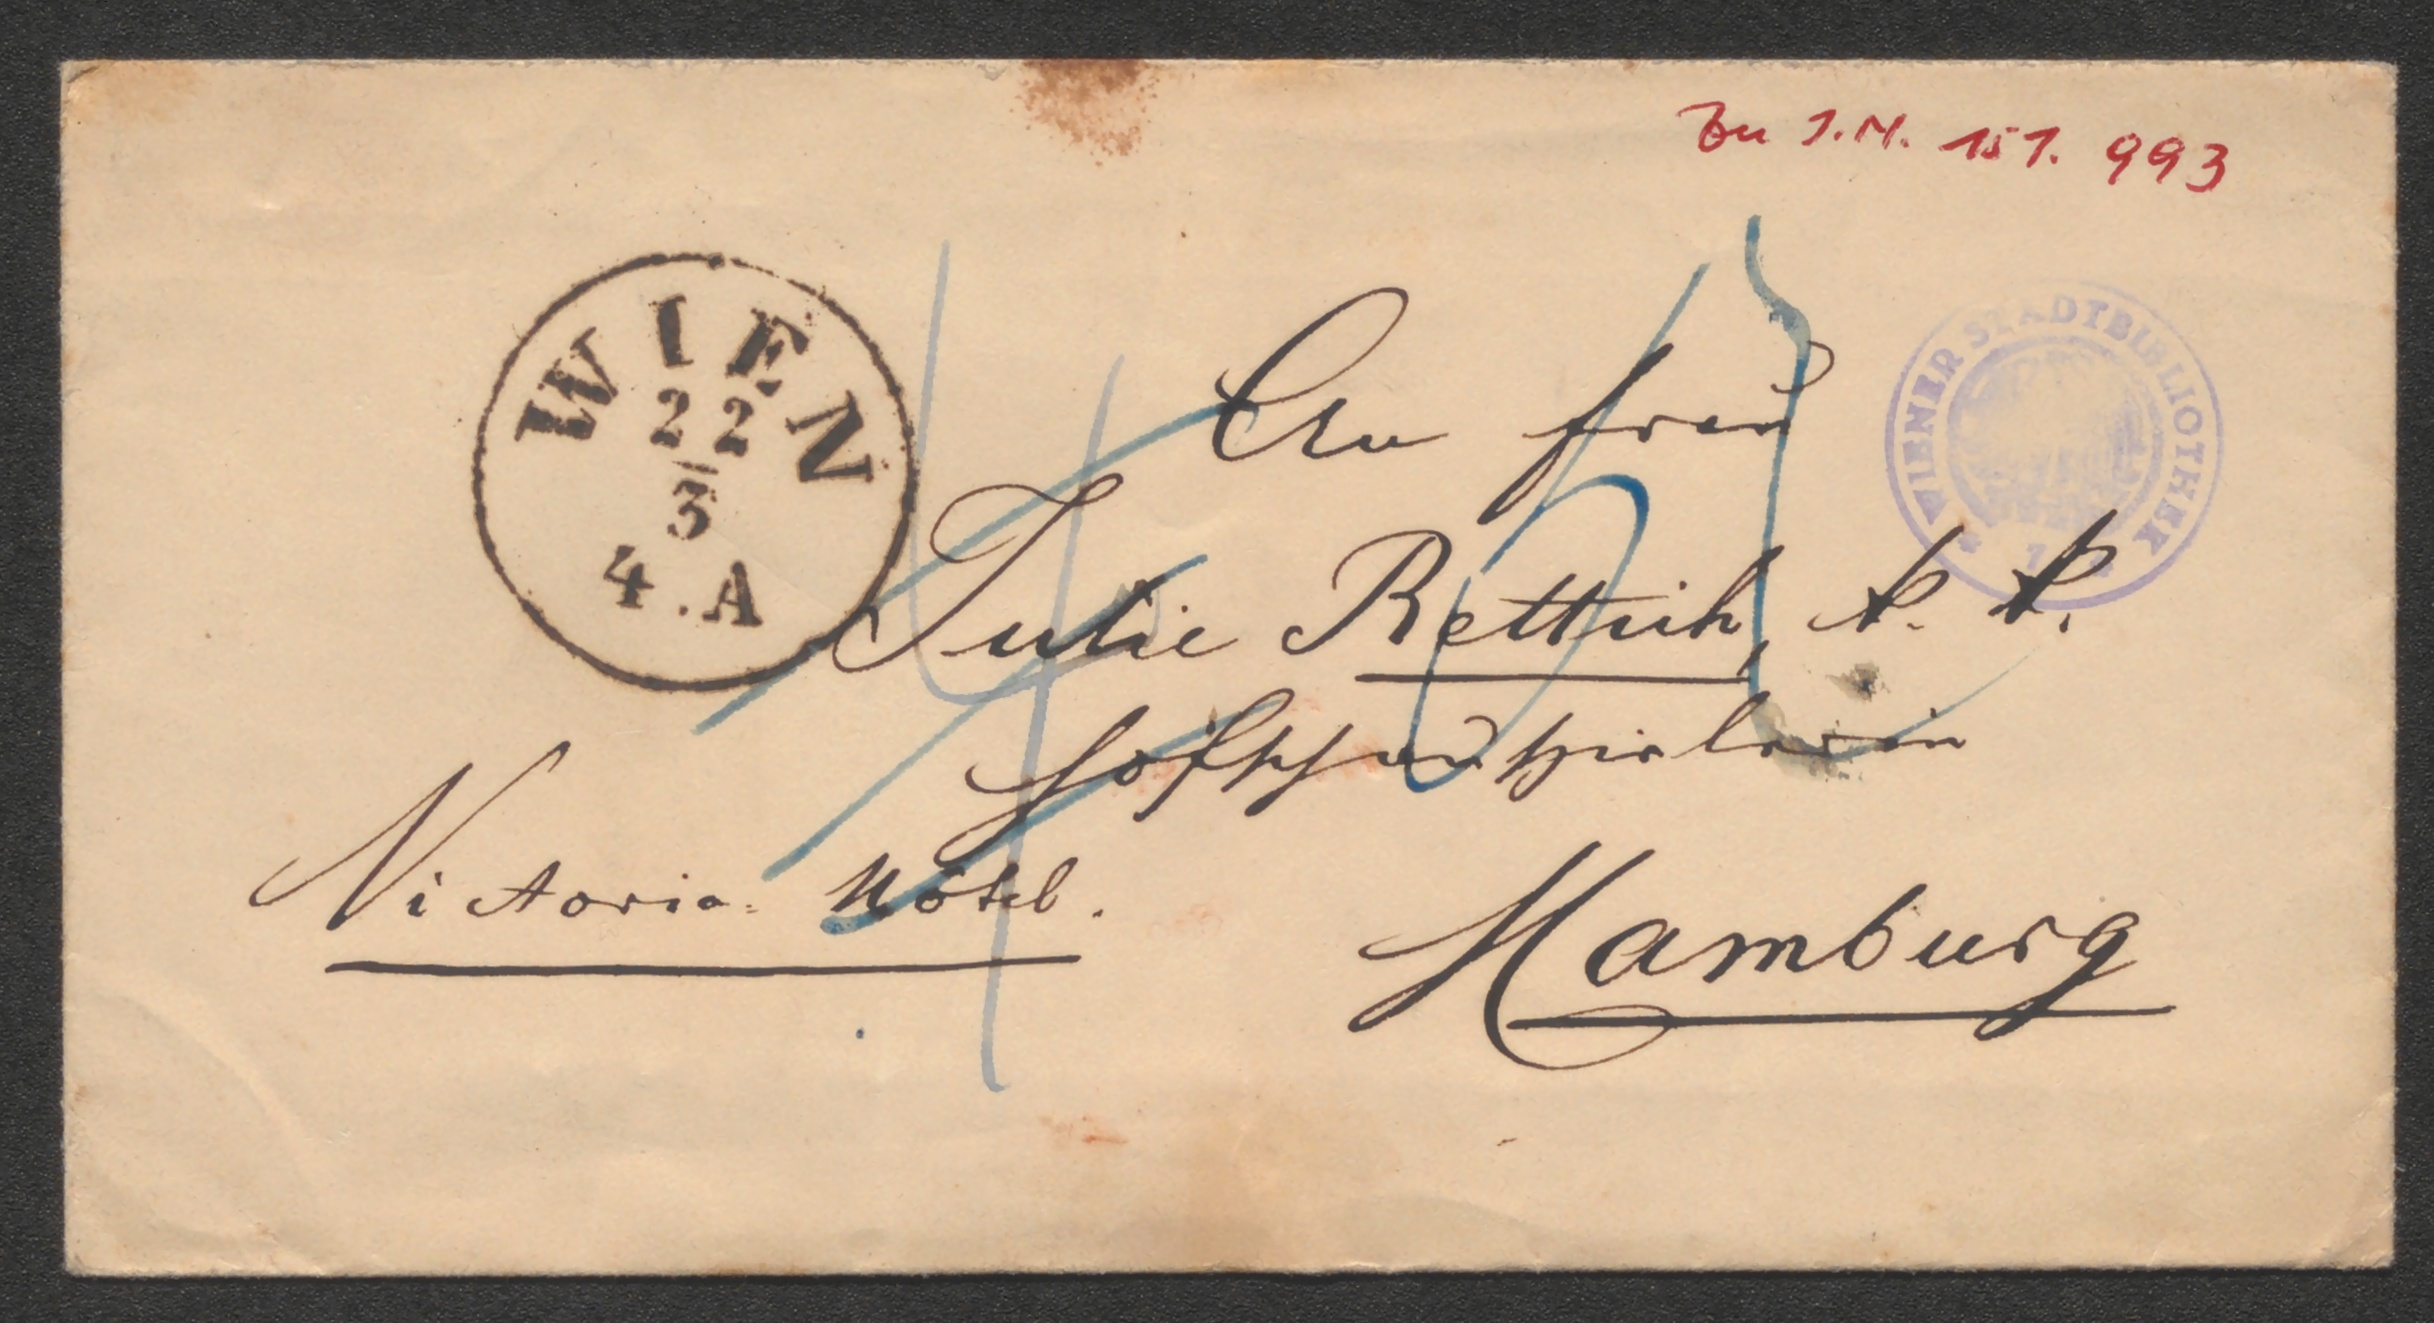 Zu I.N. 151.993
WIEN
22
3
4.A
WIENER STADTBIBLIOTHEK
An Frau
Julie Rettich, k. k.
Hofschauspielerin
Victoria-Hôtel.
Hamburg